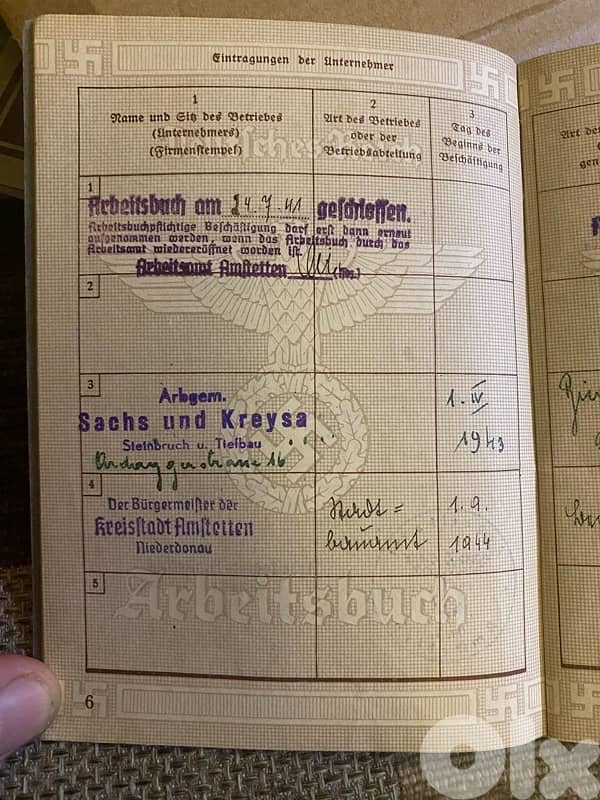 Eintragungen der Unternehmer
1
Name und Sitz des Betriebes
(Unternehmers)
(Firmenstempel)
2
Art des Betriebes
oder der
Betriebsabteilung
3
Tag des
Beginns der
Beschäftigung
1
Arbeitsbuch am 24.7.41 geschlossen.
Arbeitsbuchpflichtige Beschäftigung darf erst dann erneut
aufgenommen werden, wenn das Arbeitsbuch durch das
Arbeitsamt wiedereröffnet worden ist.
Arbeitsamt Amstetten
2
3
Arbgem.
Sachs und Kreysa
Steinbruch u. Tiefbau
Ardaggerstrasse 16
1. IV
1943
4
Der Bürgermeister der
Kreisstadt Amstetten
Niederdonau
Stadt=
bauamt
1.9.
1944
5
Arbeitsbuch
6
Art des
gen
olx